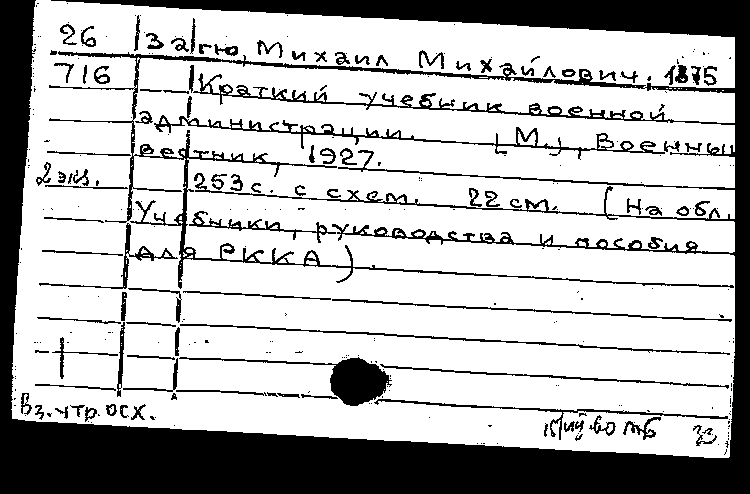 26 Загю, Михаил Михайлович, 1875
716 Краткий учебник военной
администрации. [М.], Военный
вестник, 1927.
2 экз. 253 с. с схем. 22 см. (На обл.
Учебники, руководства и пособия
для РККА).
Вз. утр. осх.
33